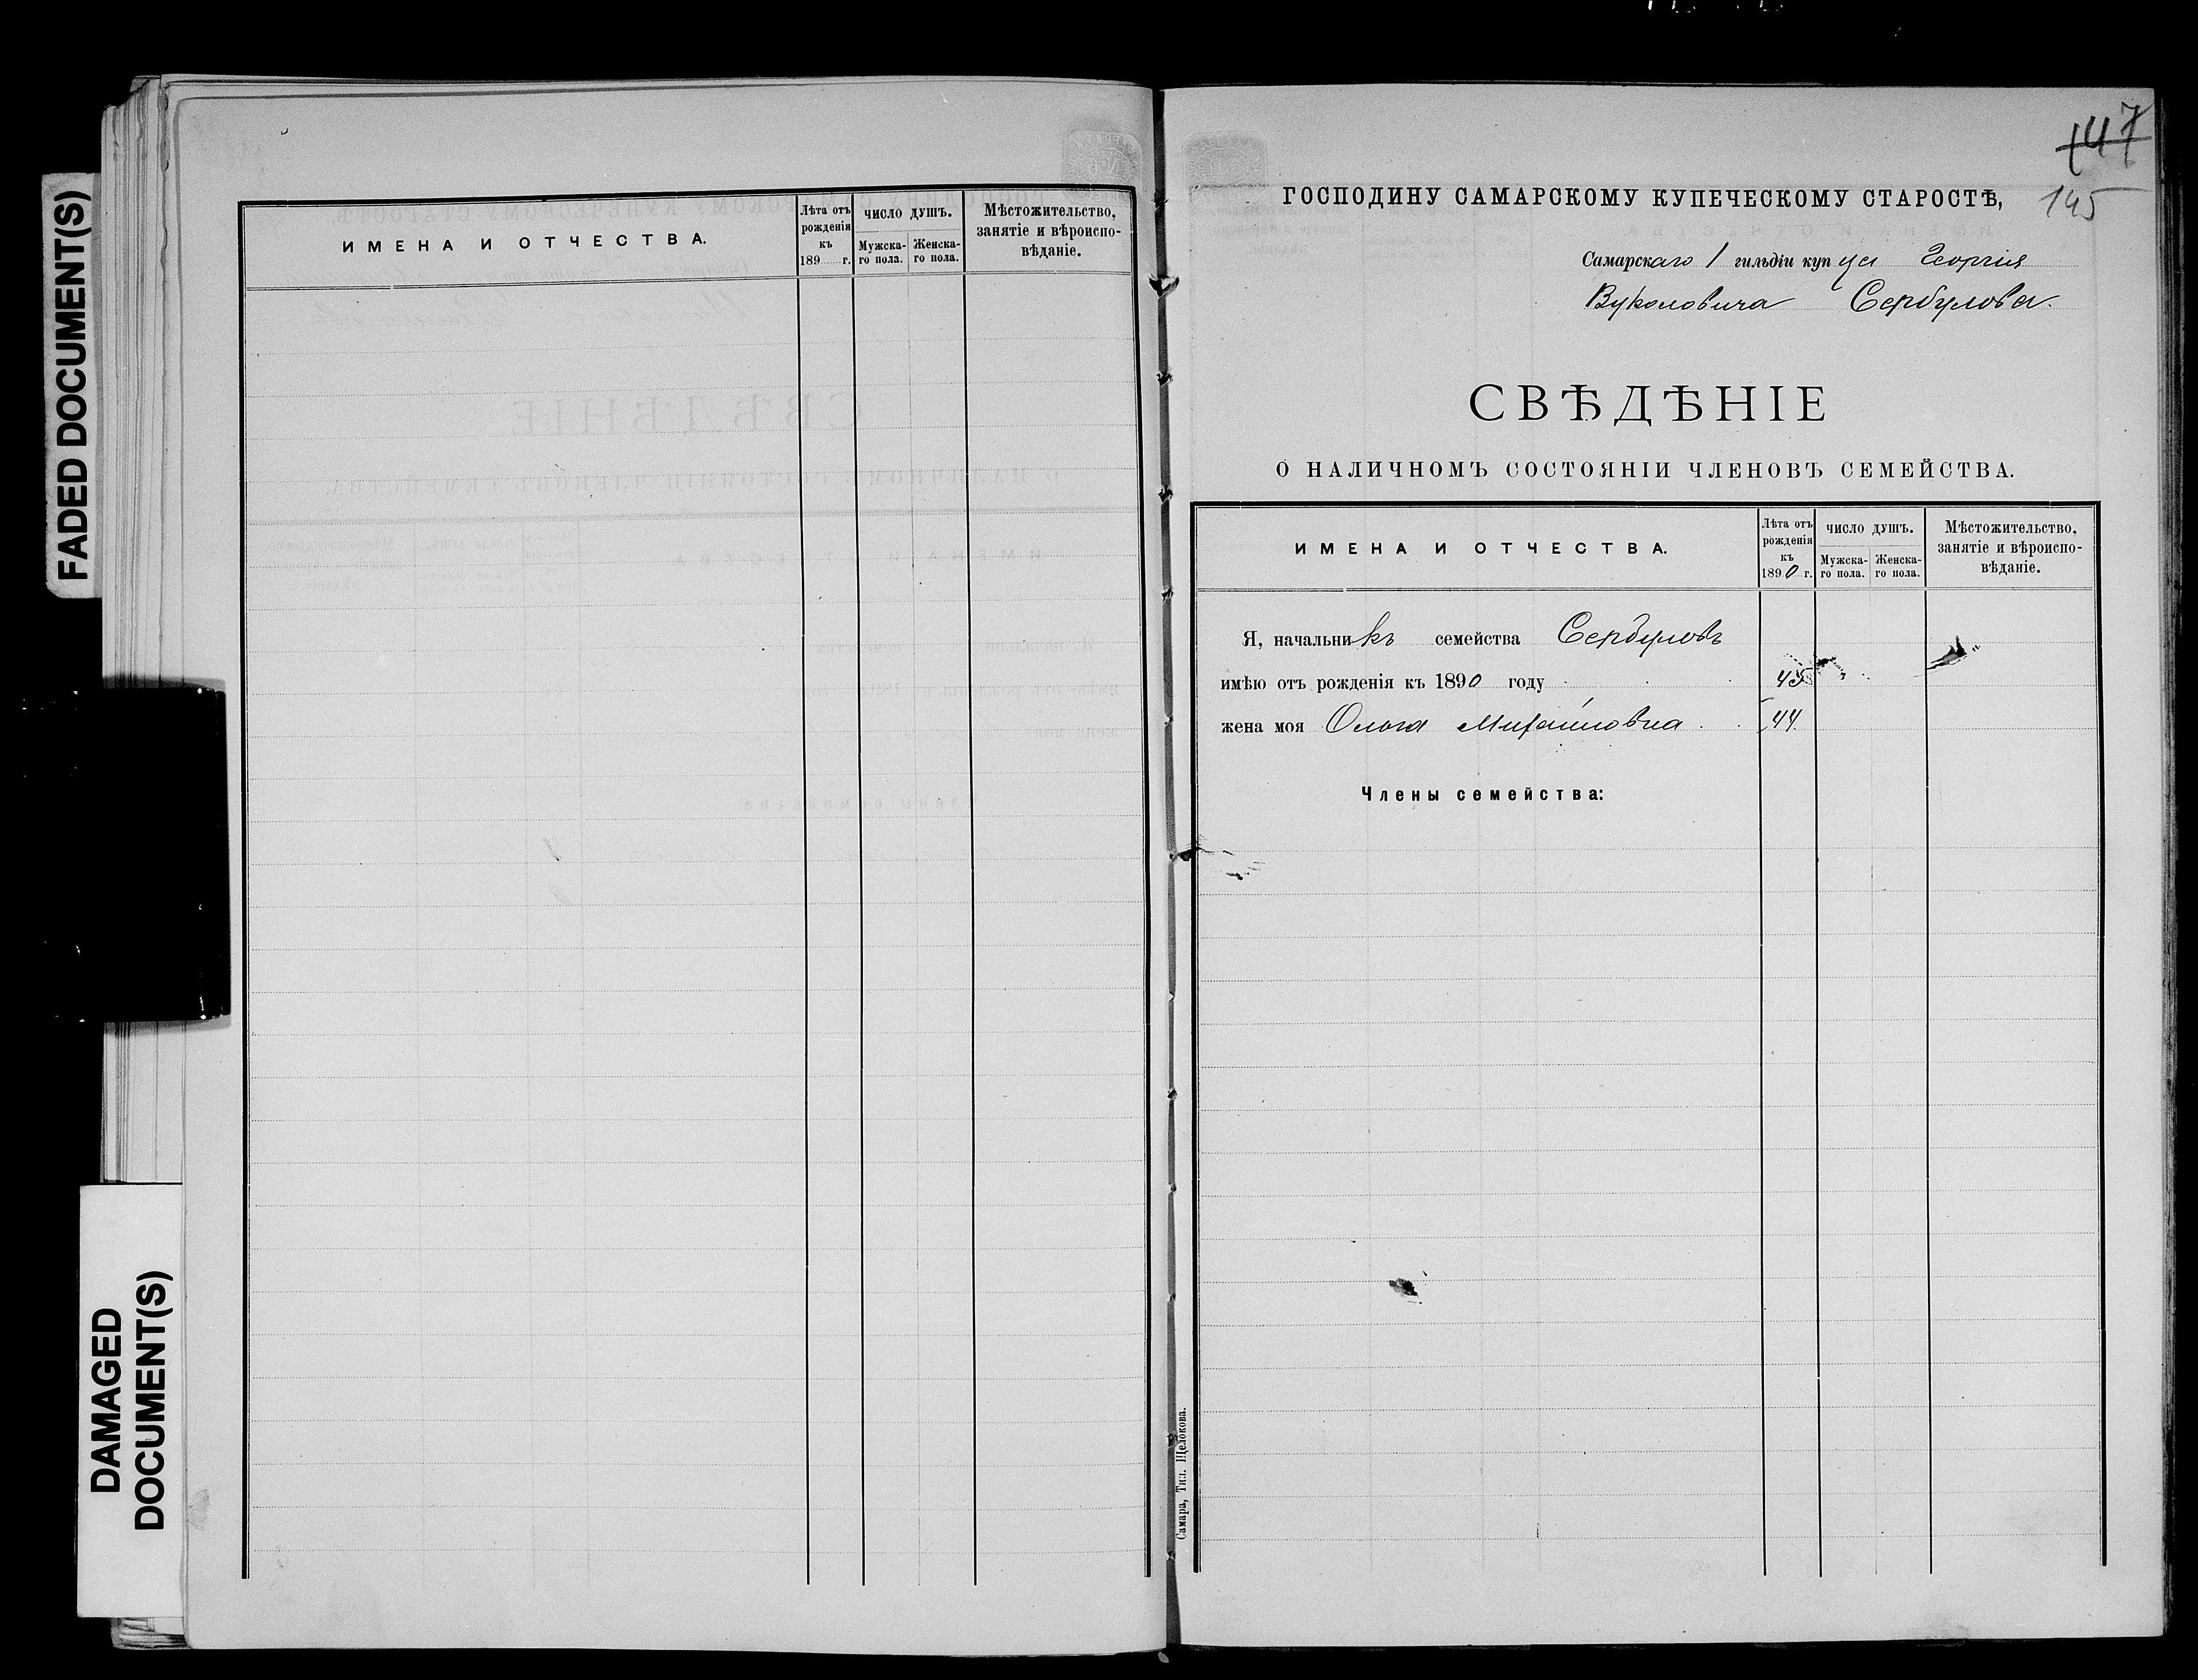 FADED DOCUMENT(S)
DAMAGED
DOCUMENT(S)
ИМЕНА И ОТЧЕСТВА.
Лѣта отъ
рожденія
къ
189 г.
число душъ.
Мужска-
го пола.
Женска-
го пола.
Мѣстожительство,
занятіе и вѣроиспо-
вѣданіе.
147
145
ГОСПОДИНУ САМАРСКОМУ КУПЕЧЕСКОМУ СТАРОСТѢ,
Самарскаго 1 гильдіи купца Георгія
Вуколовича Сербулова.
СВѢДѢНІЕ
О НАЛИЧНОМЪ СОСТОЯНІИ ЧЛЕНОВЪ СЕМЕЙСТВА.
ИМЕНА И ОТЧЕСТВА.
Лѣта отъ
рожденія
къ
1890 г.
число душъ.
Мужска-
го пола.
Женска-
го пола.
Мѣстожительство,
занятіе и вѣроиспо-
вѣданіе.
Я, начальникъ семейства Сербуловъ
имѣю отъ рожденія къ 1890 году 45
жена моя Ольга Михайловна 44.
Члены семейства:
Самара, Тип. Щелокова.